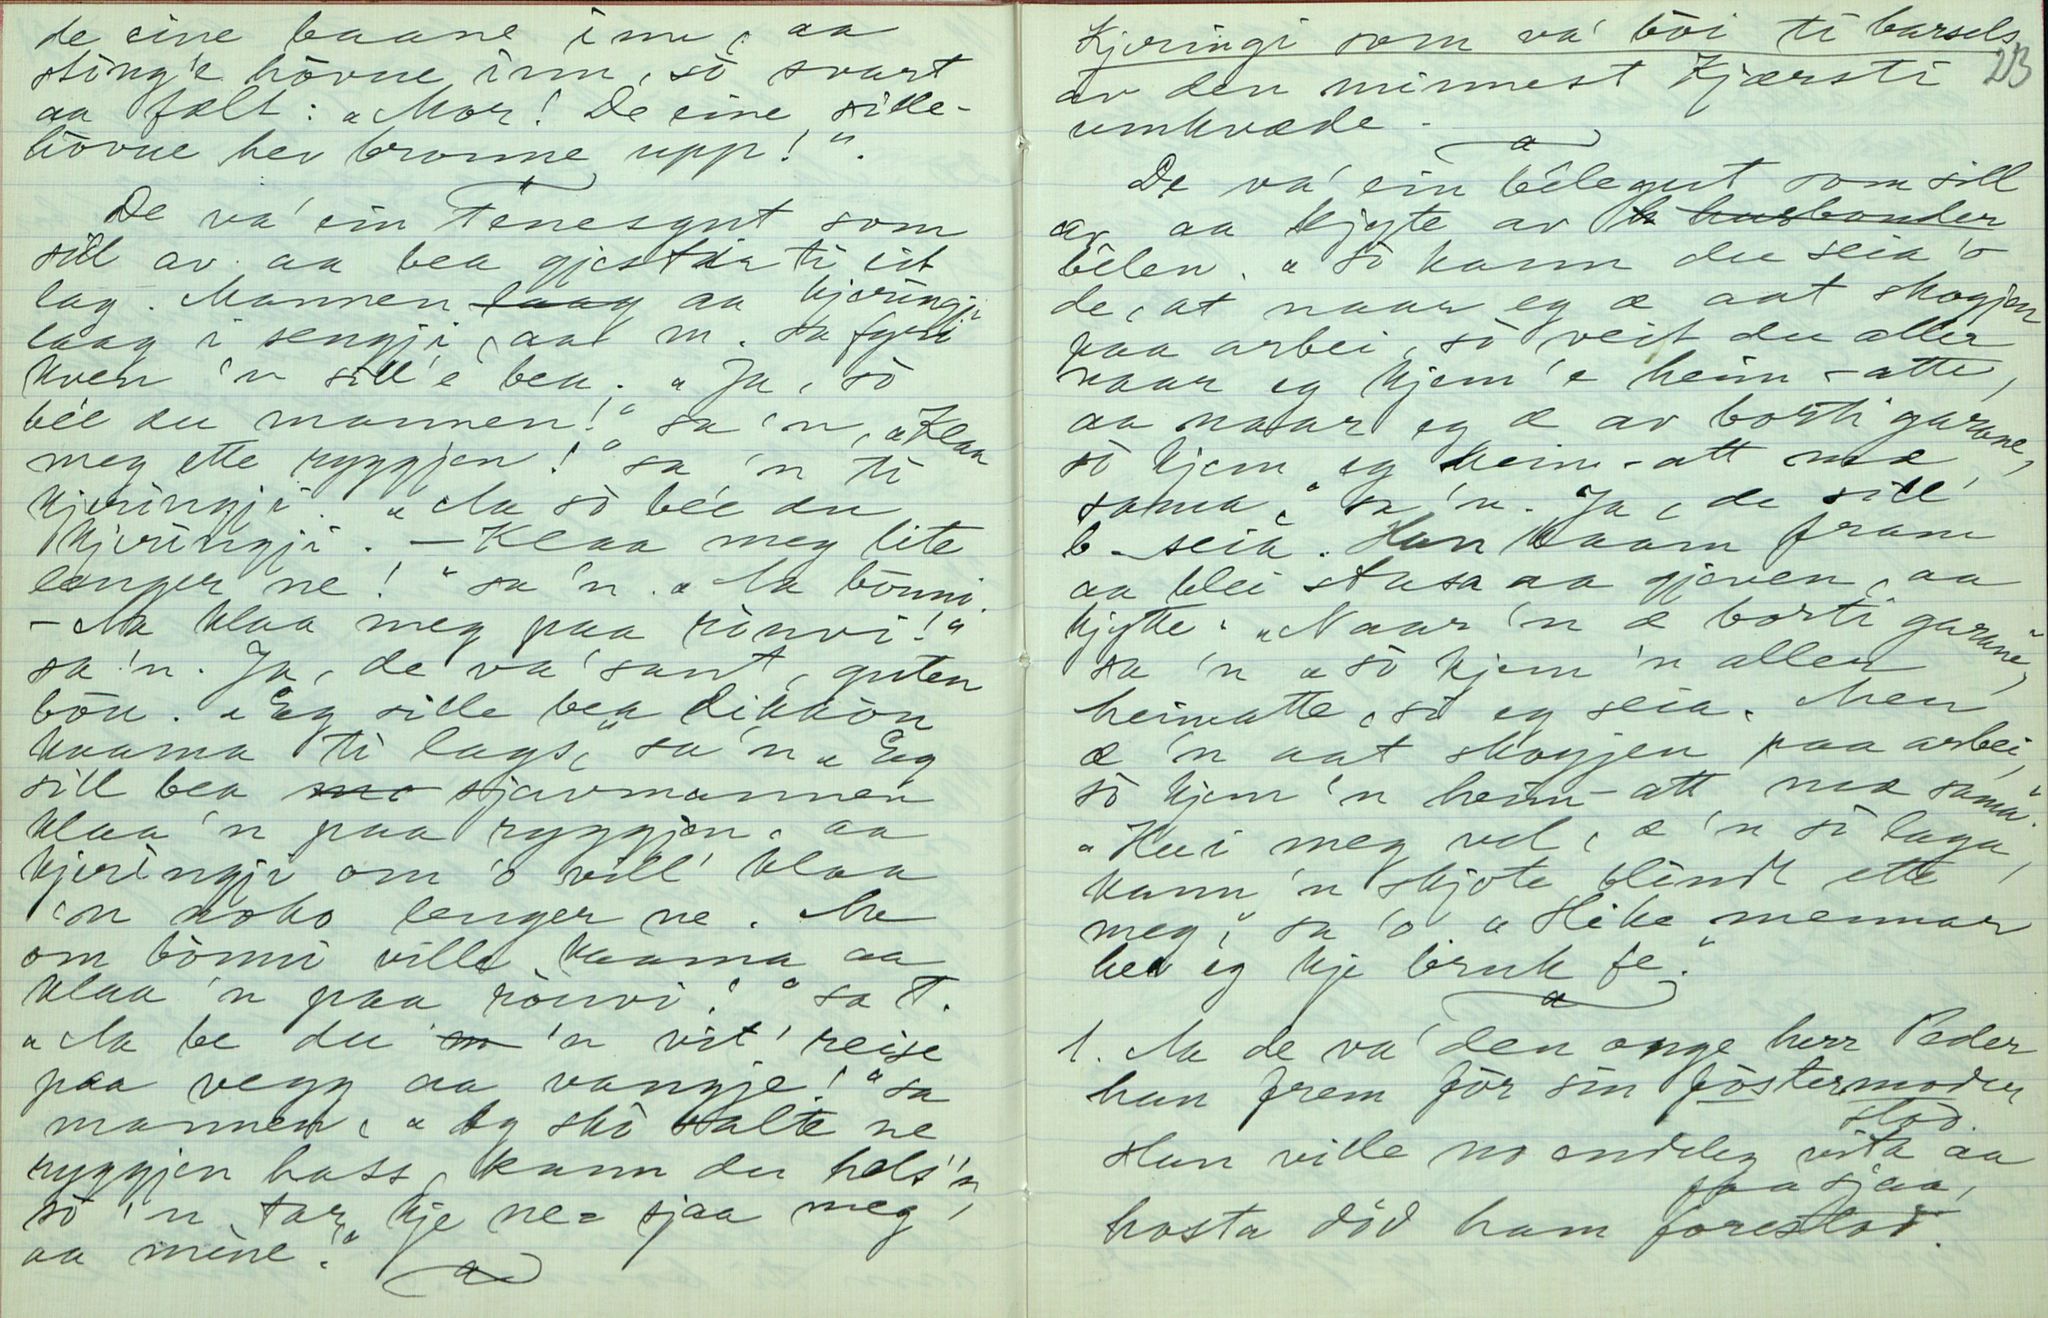 de eine baane inn, aa
sting'e hövue inn, so svart
aa fælt: "Mor! De eine sille-
hövue hev bronne upp!".
De va' ein Tenesgut som
sill av aa bea gjestir ti eit
lag. Mannen laag aa kjeringji
laag i sengji, aa m. sa fyri
kven 'n sill'e bea. "Ja, so
bée du mannen!" sa 'n, "Klaa
meg ette ryggjen!" sa 'n ti
kjeringji. "Aa so bée du
kjeringji. – Klaa meg lite
lenger ne!" sa 'n. "Aa bönni.
– Aa klaa meg paa rönvi!"
sa 'n. Ja, de va' sant, guten
bön. "Eg sille bea dikkön
kaama ti lags," sa 'n "Eg
sill bea me sjavmannen
klaa 'n paa ryggjen, aa
kjeringji om 'o vill' klaa
'n noko lenger ne. Aa
om bönni ville kaama aa
klaa 'n paa rönvi!" sa T.
"Aa be du m 'n vit' reise
paa vegg aa vangje!" sa
mannen, "Eg sko salte ne
ryggjen hass, kann du hels'n,
so 'n tar kje ne- sjaa meg,
aa mine."
213
Kjeringi som va' böi ti barsels
av den minnest Kjærsti
umkvæde.
De va' ein bélegut som sill
av aa kjyte av h husbonder
bélen. "So kann du seia 'o
de, at naar eg æ aat skogjen
paa arbei, so veit du aller
naar eg kjem'e heim-atte,
aa naar eg æ av borti garane,
so kjem eg heim-att mæ
sama," sa 'n. Ja, de sill'
b. seia. Han kaam fram
aa blei stasa aa gjeven, aa
kjytte. "Naar 'n æ borti garane,"
sa 'n "so kjem 'n aller
heimatte, so eg seia. Men
æ 'n aat skogjen paa arbei,
so kjem 'n heim-att mæ sama."
"Hui meg vel, æ 'n so laga,
kann 'n skjote blindt ette
meg," sa 'o "slike mennar
hev eg kje bruk fe."
1. Aa de va' den onge herr Peder
han frem för sin föstermoder
stod.
Han ville no endeleg vita aa
faa sjaa,
hosta död ham forestod.